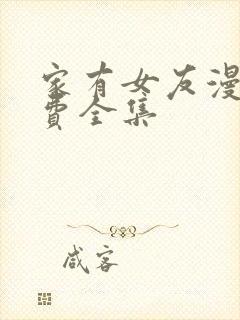 家有女友漫
费全集
咸客